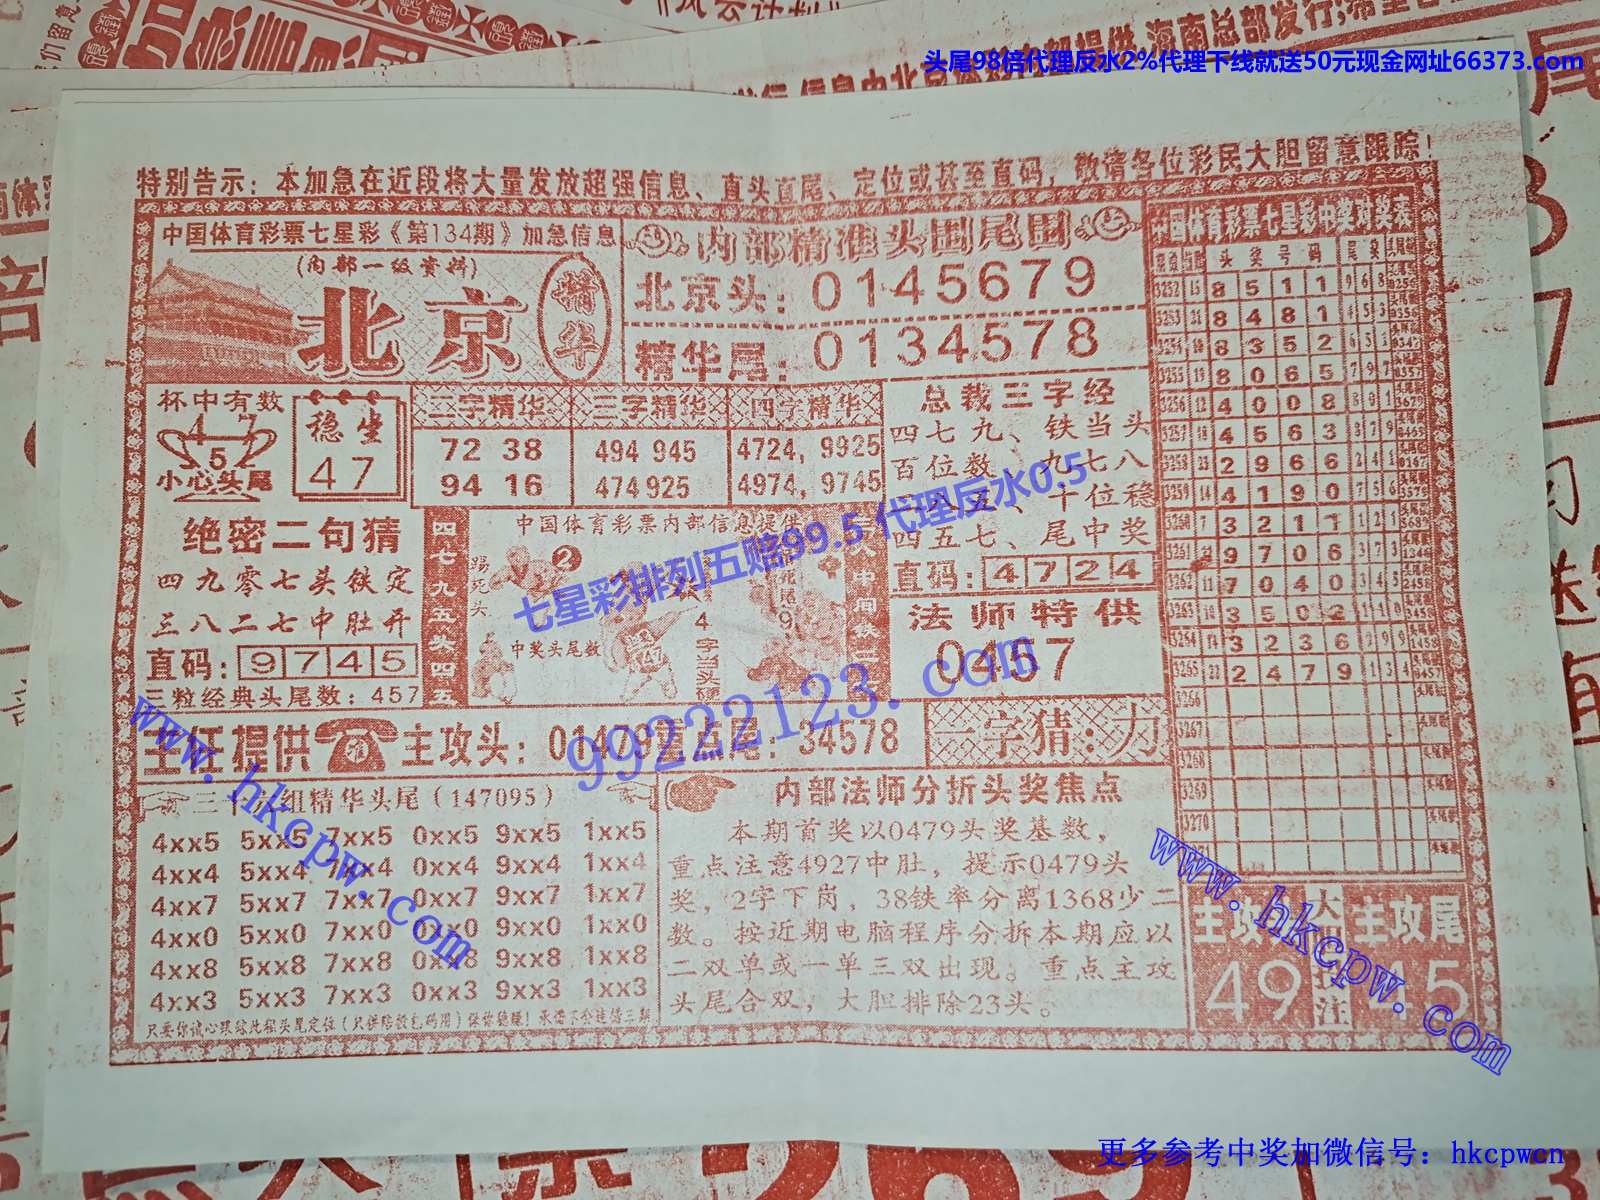 头尾98倍代理反水2%代理下线就送50元现金网址66373.com
特别告示：本加急在近段将大量发放超强信息、直头直尾、定位或甚至直码，敬请各位彩民大胆留意跟踪！
中国体育彩票七星彩《第134期》加急信息
(内部一级资料)
北京
精华
内部精准头围尾围
北京头：0145679
精华尾：0134578
杯中有数
4 7
5
小心头尾
稳坐
47
二字精华
72 38
94 16
三字精华
494 945
474 925
四字精华
4724，9925
4974，9745
总裁三字经
四七九、铁当头
百位数、九七八
一八五、十位稳
四五七、尾中奖
直码：4724
法师特供
0457
绝密二句猜
四九零七头铁定
三八二七中肚开
直码：9745
三粒经典头尾数：457
四七九五头四五
中国体育彩票内部信息提供
踢死头
2
中奖头尾数
4字当头硬
七星彩排列五赔99.5 代理反水0.5
99222123.com
主任提供
主攻头：01479
重点尾：34578
一字猜：力
组精华头尾（147095）
4xx5 5xx5 7xx5 0xx5 9xx5 1xx5
4xx4 5xx4 7xx4 0xx4 9xx4 1xx4
4xx7 5xx7 7xx7 0xx7 9xx7 1xx7
4xx0 5xx0 7xx0 0xx0 9xx0 1xx0
4xx8 5xx8 7xx8 0xx8 9xx8 1xx8
4xx3 5xx3 7xx3 0xx3 9xx3 1xx3
内部法师分折头奖焦点
本期首奖以0479头奖基数，
重点注意4927中肚，提示0479头
奖，2字下岗，38铁率分离1368少二
数。按近期电脑程序分拆本期应以
二双单或一单三双出现。重点主攻
头尾合双，大胆排除23头。
中国体育彩票七星彩中奖对奖表
头奖号码 尾奖
3252 15 8 5 1 1 9 6 8
3253 21 8 4 8 1 4 5 3
3254 8 3 5 2
3255 8 0 6 5 7 9 7
3256 12 4 0 0 8 8 0 1
3257 4 5 6 3
3258 2 9 6 6 2 4 1
3259 14 4 1 9 0 7 5 6
3260 7 3 2 1 1 1 2 1
3261 9 7 0 6 3 7 3
3262 11 7 0 4 0 3 4 5
3263 3 5 0 2 1 4 0
3264 14 3 2 3 6 2 9 9
3265 22 2 4 7 9 1 3 4
3266
3267
3268
3269
3270
主攻 主攻尾
49 45
注
www.hkcpw.com
www.hkcpw.com
更多参考中奖加微信号：hkcpwcn